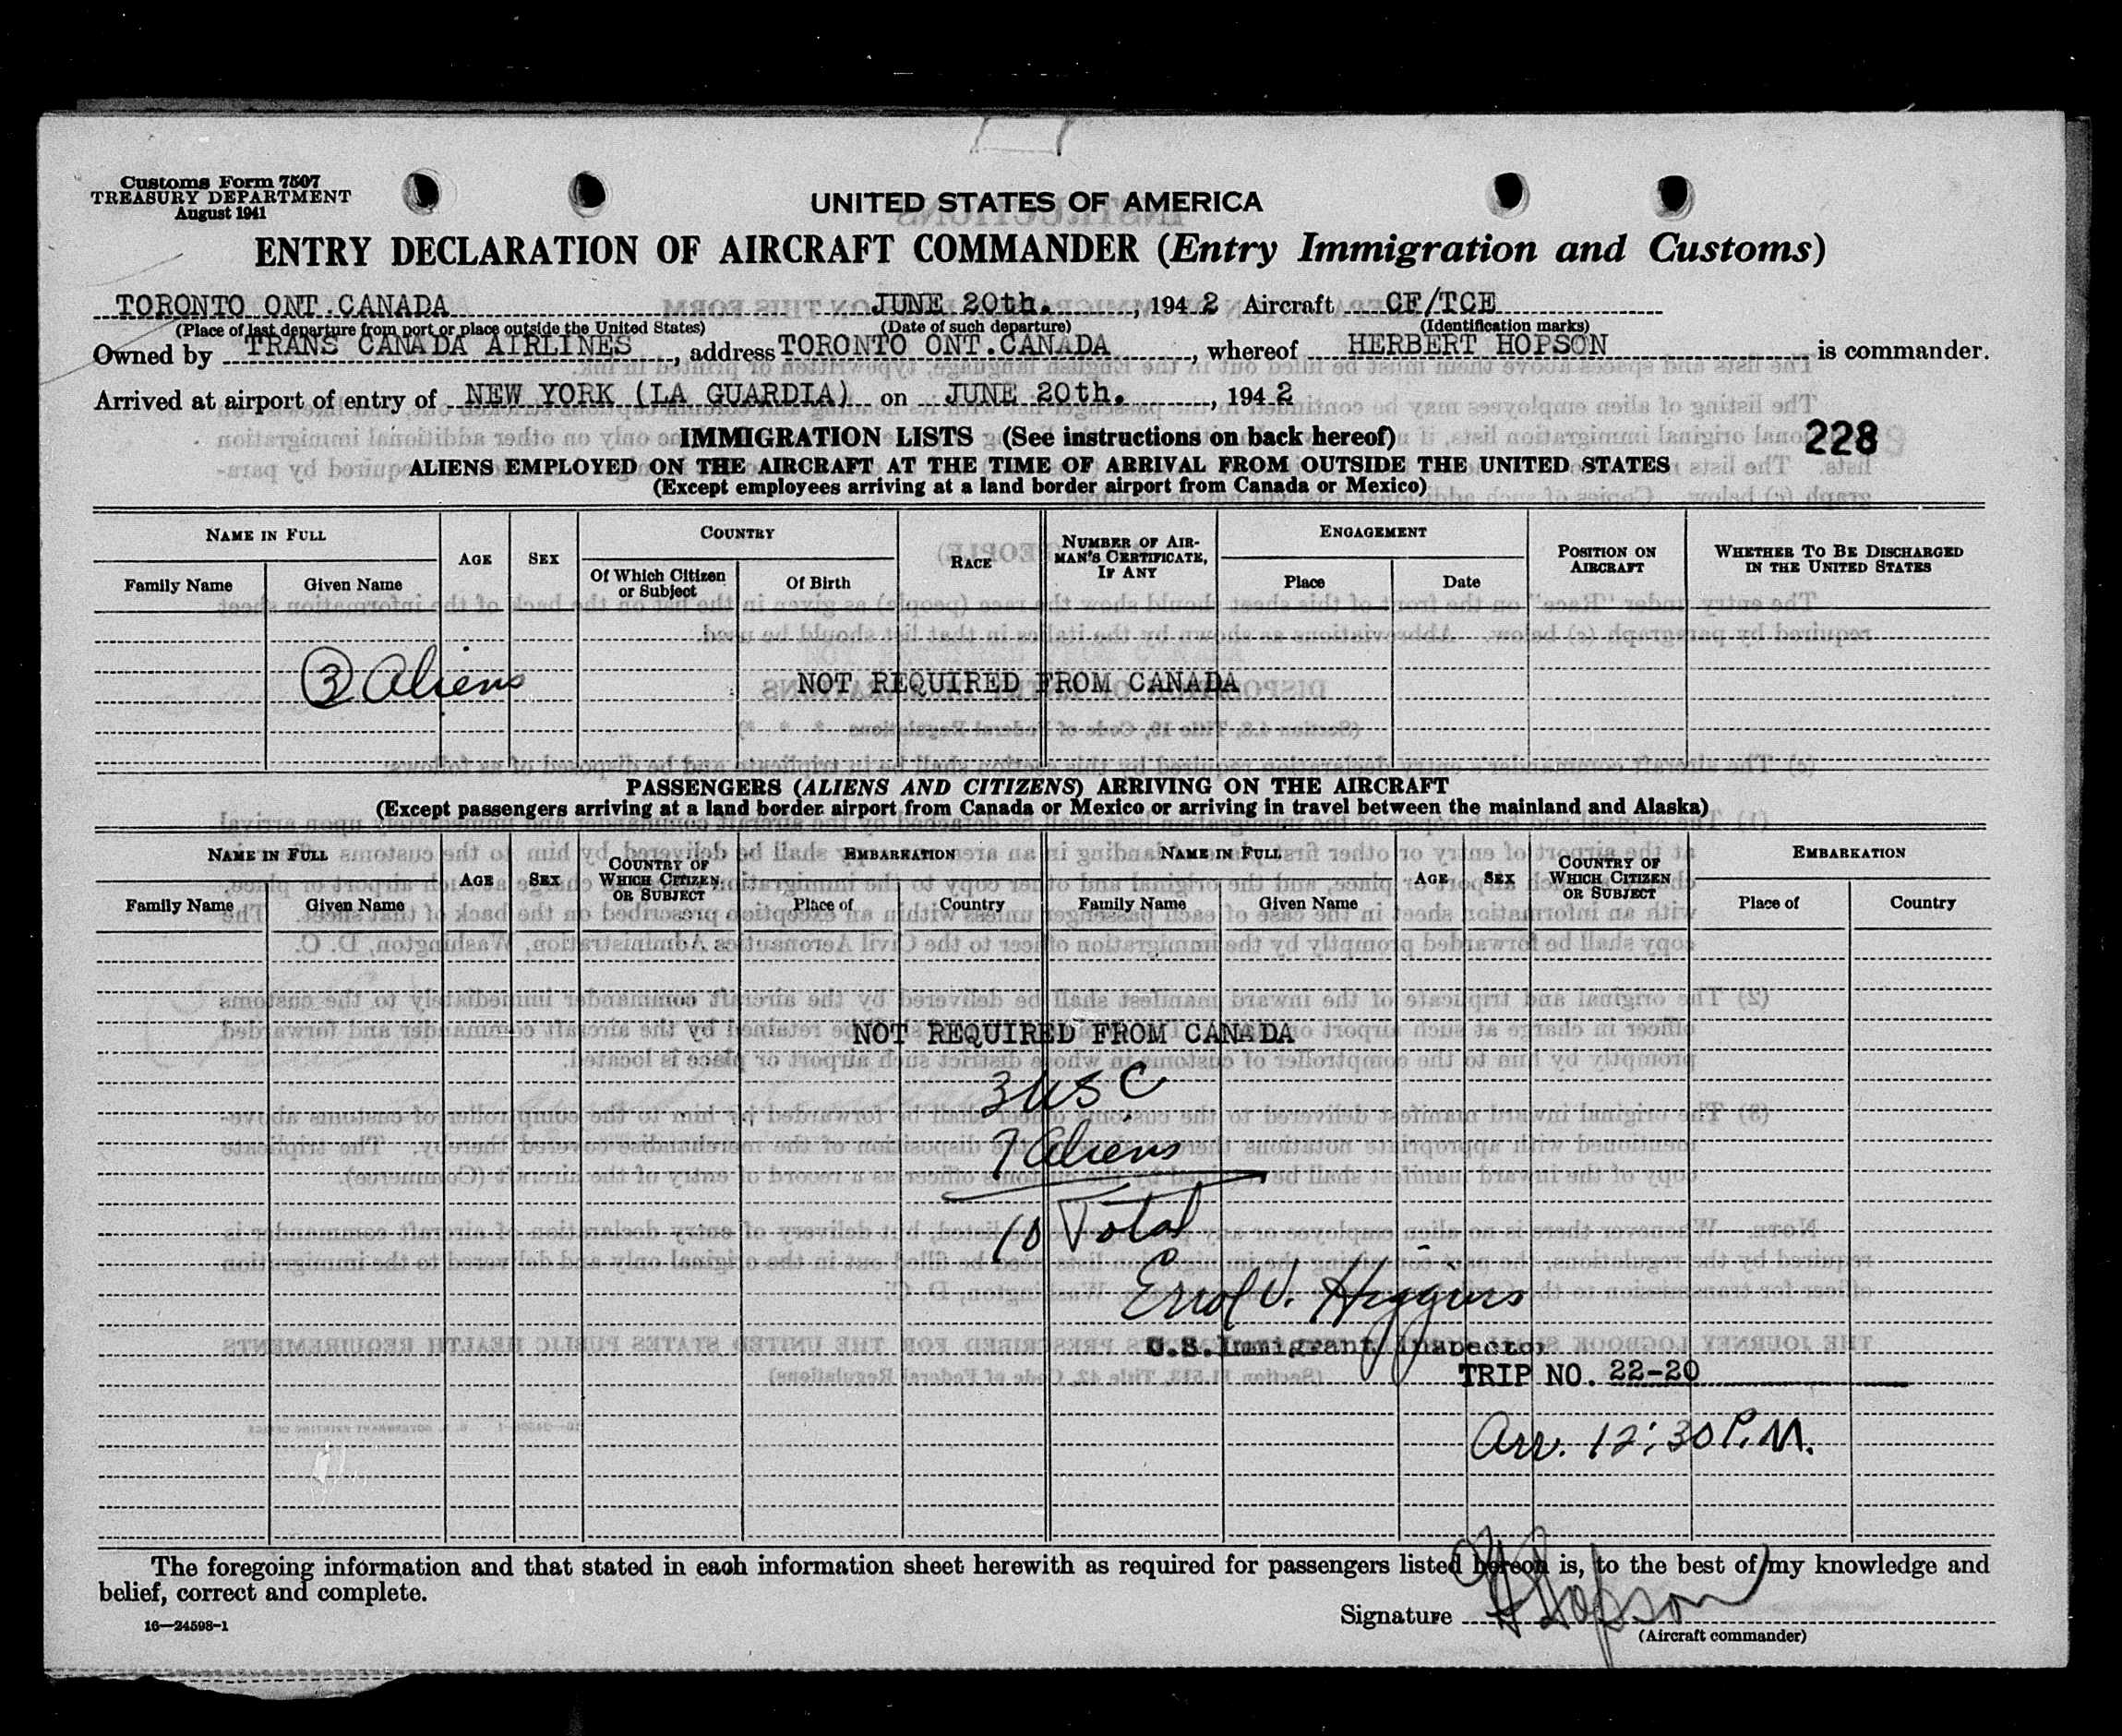 Customs Form 7507
TREASURY DEPARTMENT
August 1941
UNITED STATES OF AMERICA
ENTRY DECLARATION OF AIRCRAFT COMMANDER (Entry Immigration and Customs)
TORONTO ONT.CANADA JUNE 20th. , 194 2 Aircraft CF/TCE
(Place of last departure from port or place outside the United States) (Date of such departure) (Identification marks)
Owned by TRANS CANADA AIRLINES , address TORONTO ONT.CANADA , whereof HERBERT HOPSON is commander.
Arrived at airport of entry of NEW YORK (LA GUARDIA) on JUNE 20th. , 194 2
IMMIGRATION LISTS (See instructions on back hereof) 228
ALIENS EMPLOYED ON THE AIRCRAFT AT THE TIME OF ARRIVAL FROM OUTSIDE THE UNITED STATES
(Except employees arriving at a land border airport from Canada or Mexico)
NAME IN FULL
Family Name
Given Name
AGE
SEX
COUNTRY
Of Which Citizen or Subject
Of Birth
RACE
NUMBER OF AIR-
MAN'S CERTIFICATE,
IF ANY
ENGAGEMENT
Place
Date
POSITION ON
AIRCRAFT
WHETHER TO BE DISCHARGED
IN THE UNITED STATES
3 Aliens NOT REQUIRED FROM CANADA
PASSENGERS (ALIENS AND CITIZENS) ARRIVING ON THE AIRCRAFT
(Except passengers arriving at a land border airport from Canada or Mexico or arriving in travel between the mainland and Alaska)
NAME IN FULL
Family Name
Given Name
AGE
SEX
COUNTRY OF
WHICH CITIZEN
OR SUBJECT
EMBARKATION
Place of
Country
NAME IN FULL
Family Name
Given Name
AGE
SEX
COUNTRY OF
WHICH CITIZEN
OR SUBJECT
EMBARKATION
Place of
Country
NOT REQUIRED FROM CANADA
3 USC
7 Aliens
10 Total
Errol V. Higgins
U.S. Immigrant Inspector
TRIP NO. 22-20
Arr. 12:30 P.M.
The foregoing information and that stated in each information sheet herewith as required for passengers listed hereon is, to the best of my knowledge and
belief, correct and complete.
16—24598-1
Signature H Hopson
(Aircraft commander)